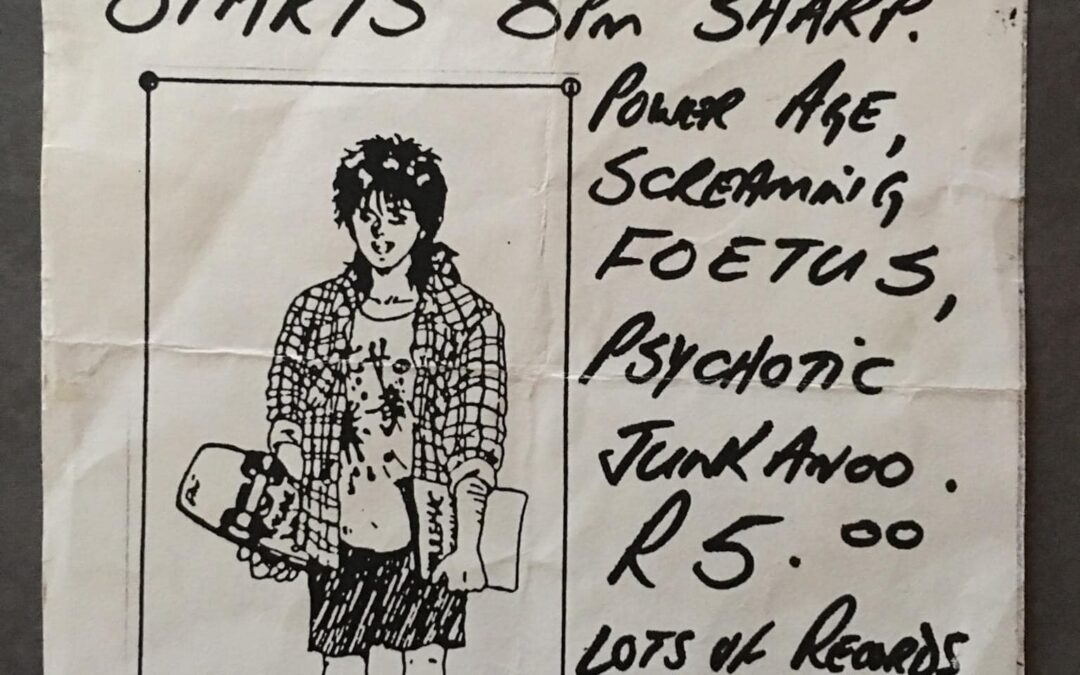 STARTS 8PM SHARP.
POWER AGE,
SCREAMING
FOETUS,
PSYCHOTIC
JUNKANOO.
R5.00
LOTS OF RECORDS